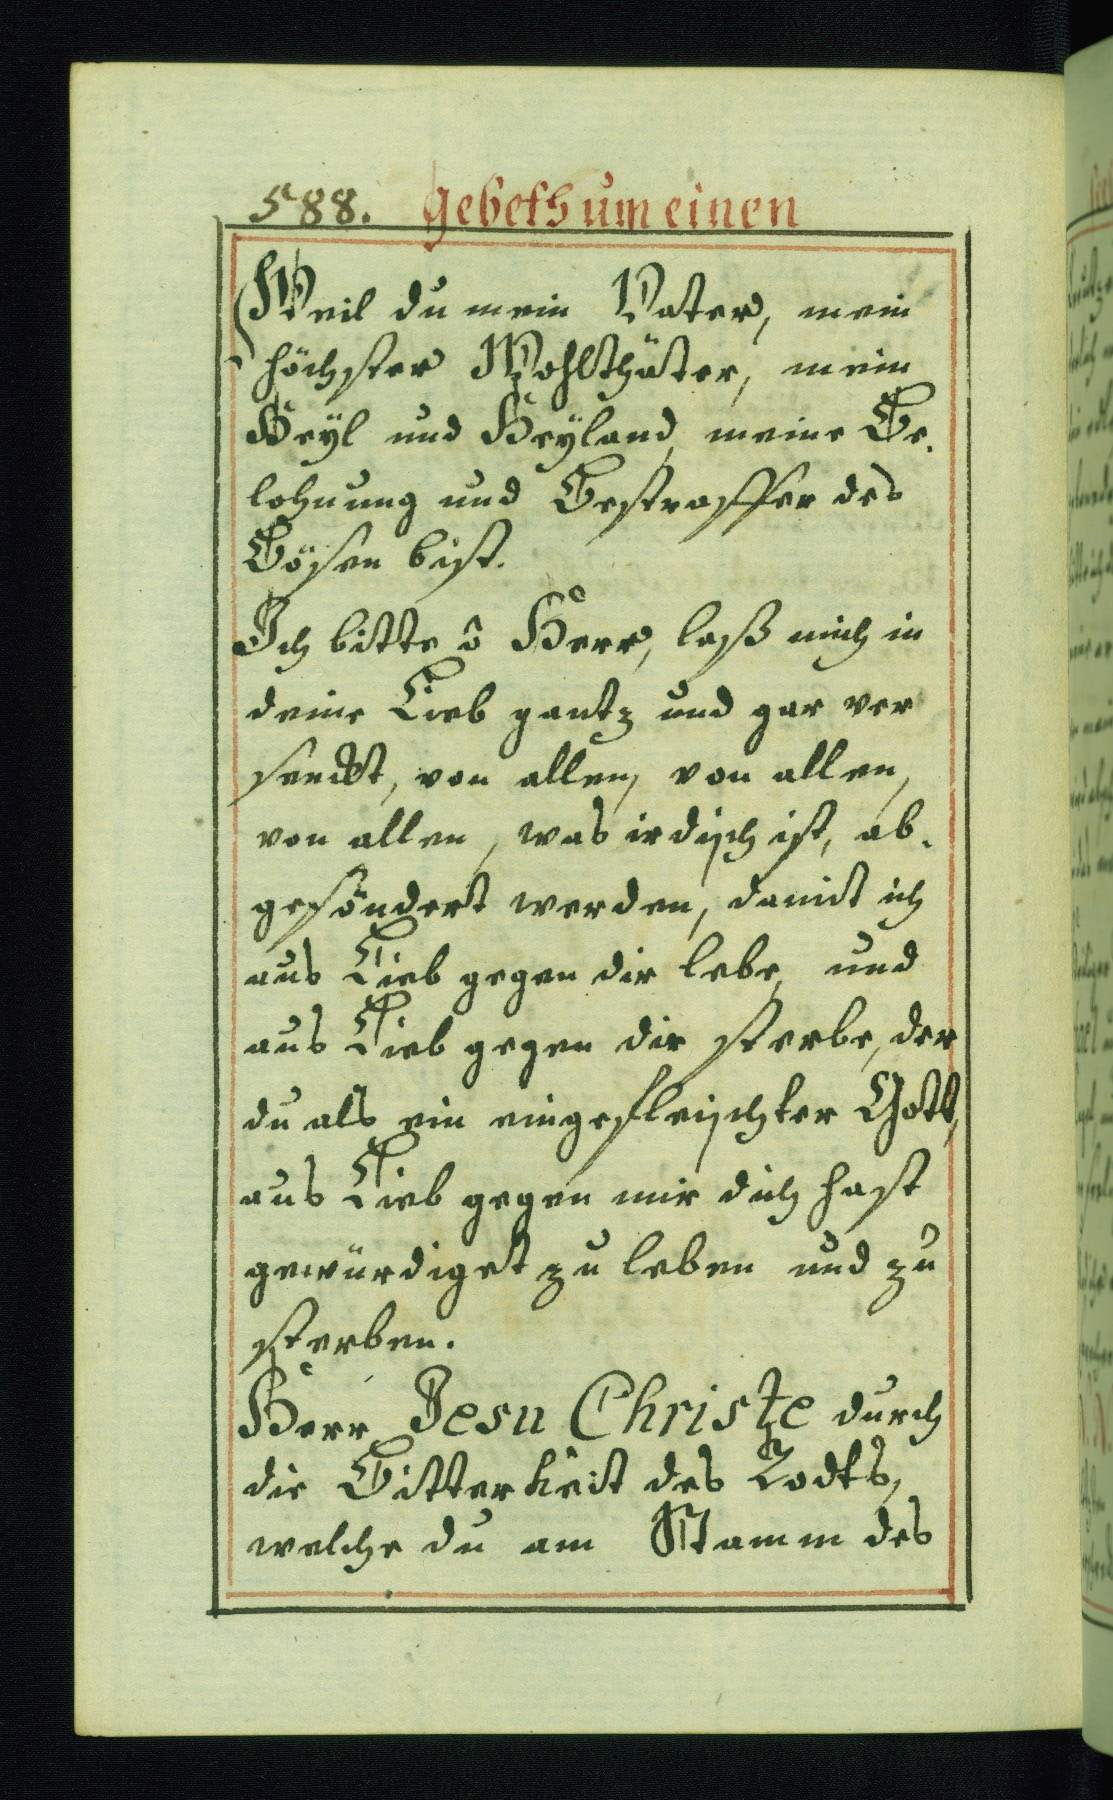 588. Gebeth um einen
Weil du mein Vater, mein
höchster Wohlthäter, mein
Heyl und Heÿland, meine Be-
lohnung und Bestraffer des
Bösen bist.
Ich bitte ô Herr, laß mich in
deine Lieb gantz und gar ver
senckt, von allen, von allen,
von allen, was irdisch ist, ab-
gesöndert werden, damit ich
aus Lieb gegen dir lebe, und
aus Lieb gegen dir sterbe, der
du als ein eingefleischter Gott,
aus Lieb gegen mir dich hast
gewürdiget zu leben und zu
sterben.
Herr Jesu Christe durch
die Bitterkeit des Todts,
welche du am Stamm des